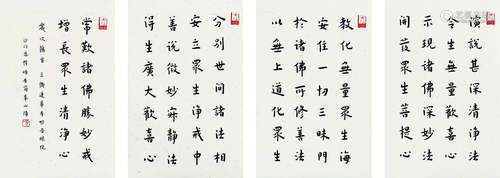 演說甚深清淨法
令生無量歡喜心
示現諸佛深妙法
開發眾生菩提心
教化無量眾生海
安住一切三昧門
於諸佛所修善法
以無上道化眾生
分別世間諸法相
安立眾生淨戒中
善說微妙寂靜法
得生廣大歡喜心
常歎諸佛勝妙戒
增長眾生清淨心
歲次
沙門